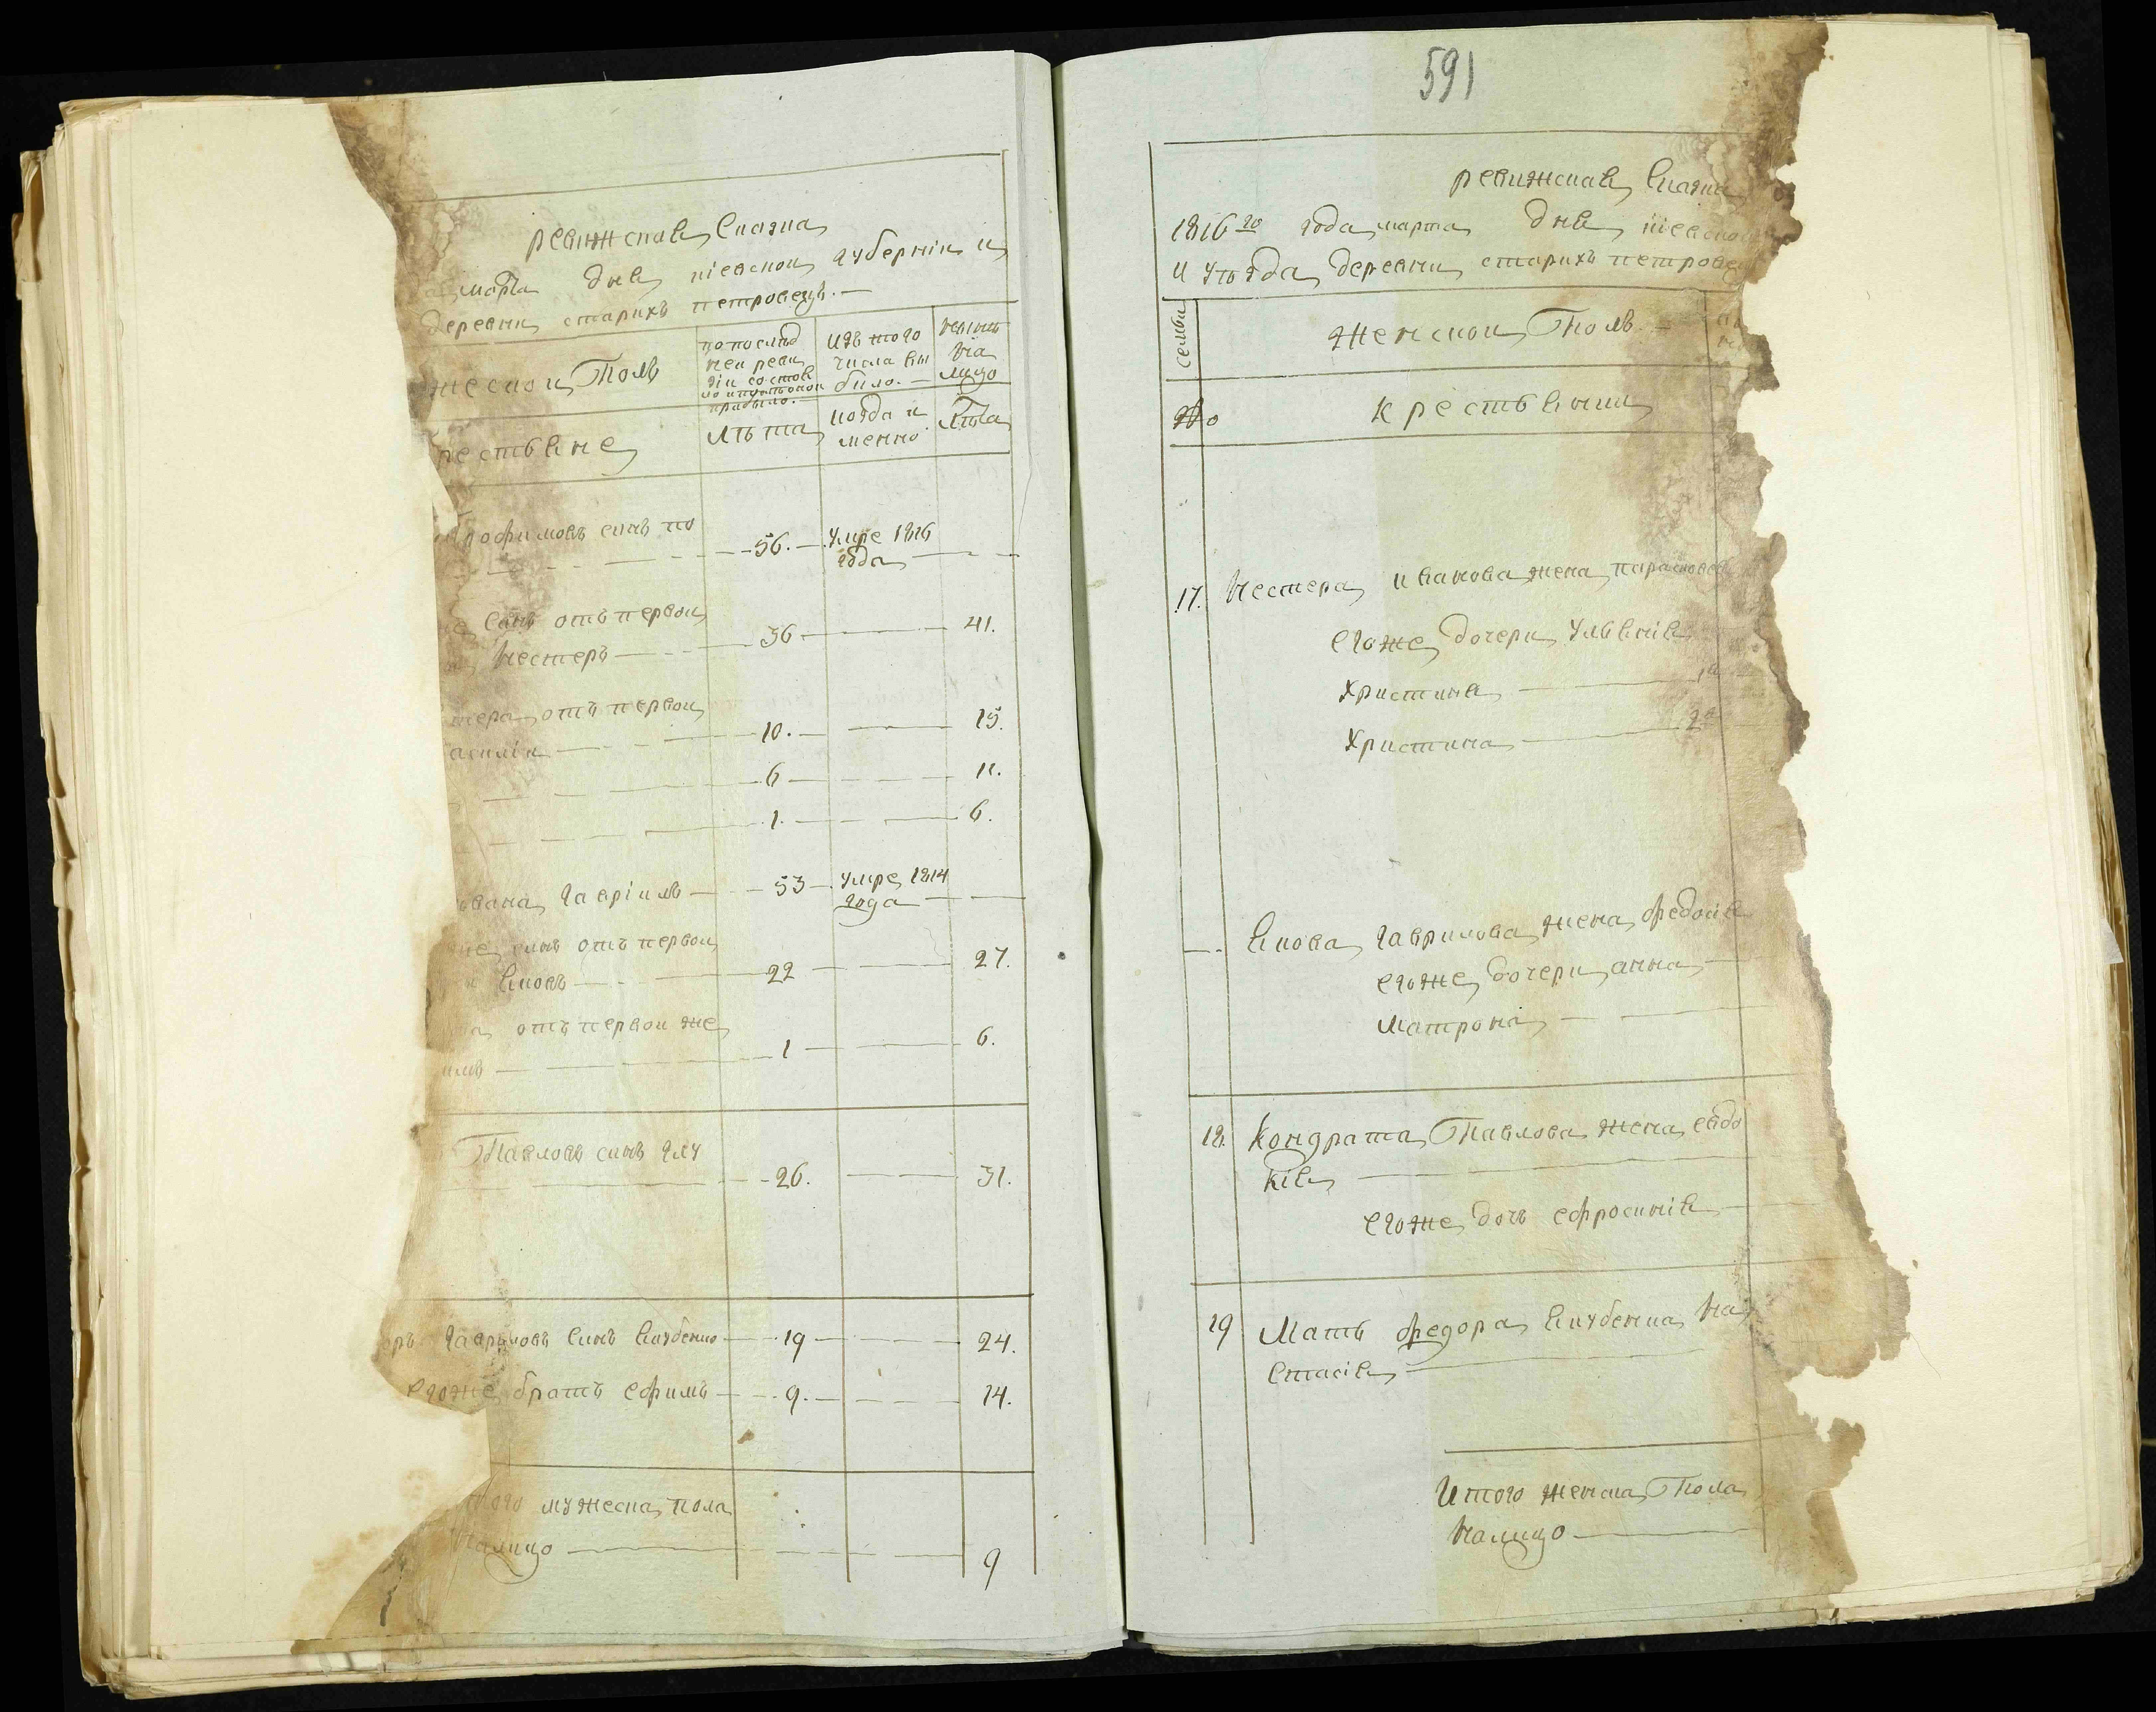 591
ревижская Сказка
марта дня кіевской губернiи и
деревни старихъ петровецъ.—
жеской Полъ
попослѣд
ней реви
зіи состоя
прибыло.—
изъ того
числа вы
било.—
нынѣ
на
лицо
рестьяне
лѣта
когда и
менно
лѣта
трофимовъ синъ по
56.
умре 1816
года
Синъ отъ первой
Нестеръ
36
41.
тера отъ первой
асилій
10.
15.
6
11.
1.
6.
ована гавріилъ
53
умре 1814
года
синъ отъ первой
Яковъ
22
27.
отъ первой же
1
6.
Павловъ синъ глу
26.
31.
гавриловъ Синъ Якубенко
19
24.
егоже братъ ефимъ
9.
14.
того мужеска пола
налицо
9
ревижская Сказка
1816го года марта дня кіевской
и уѣзда деревни старихъ петровецъ
семьи
женской Полъ
№
крестьянки
17. Нестера иванова жена парасковея
егоже дочери Ульянія
Христина 1я
Христина 2я
Якова гаврилова жена федосія
егоже дочери анна
Матрона
18. Кондрата Павлова жена евдо
кія
егоже дочь ефросинія
19 Мать федора Якубенка На
стасія
Итого женска Пола
налицо